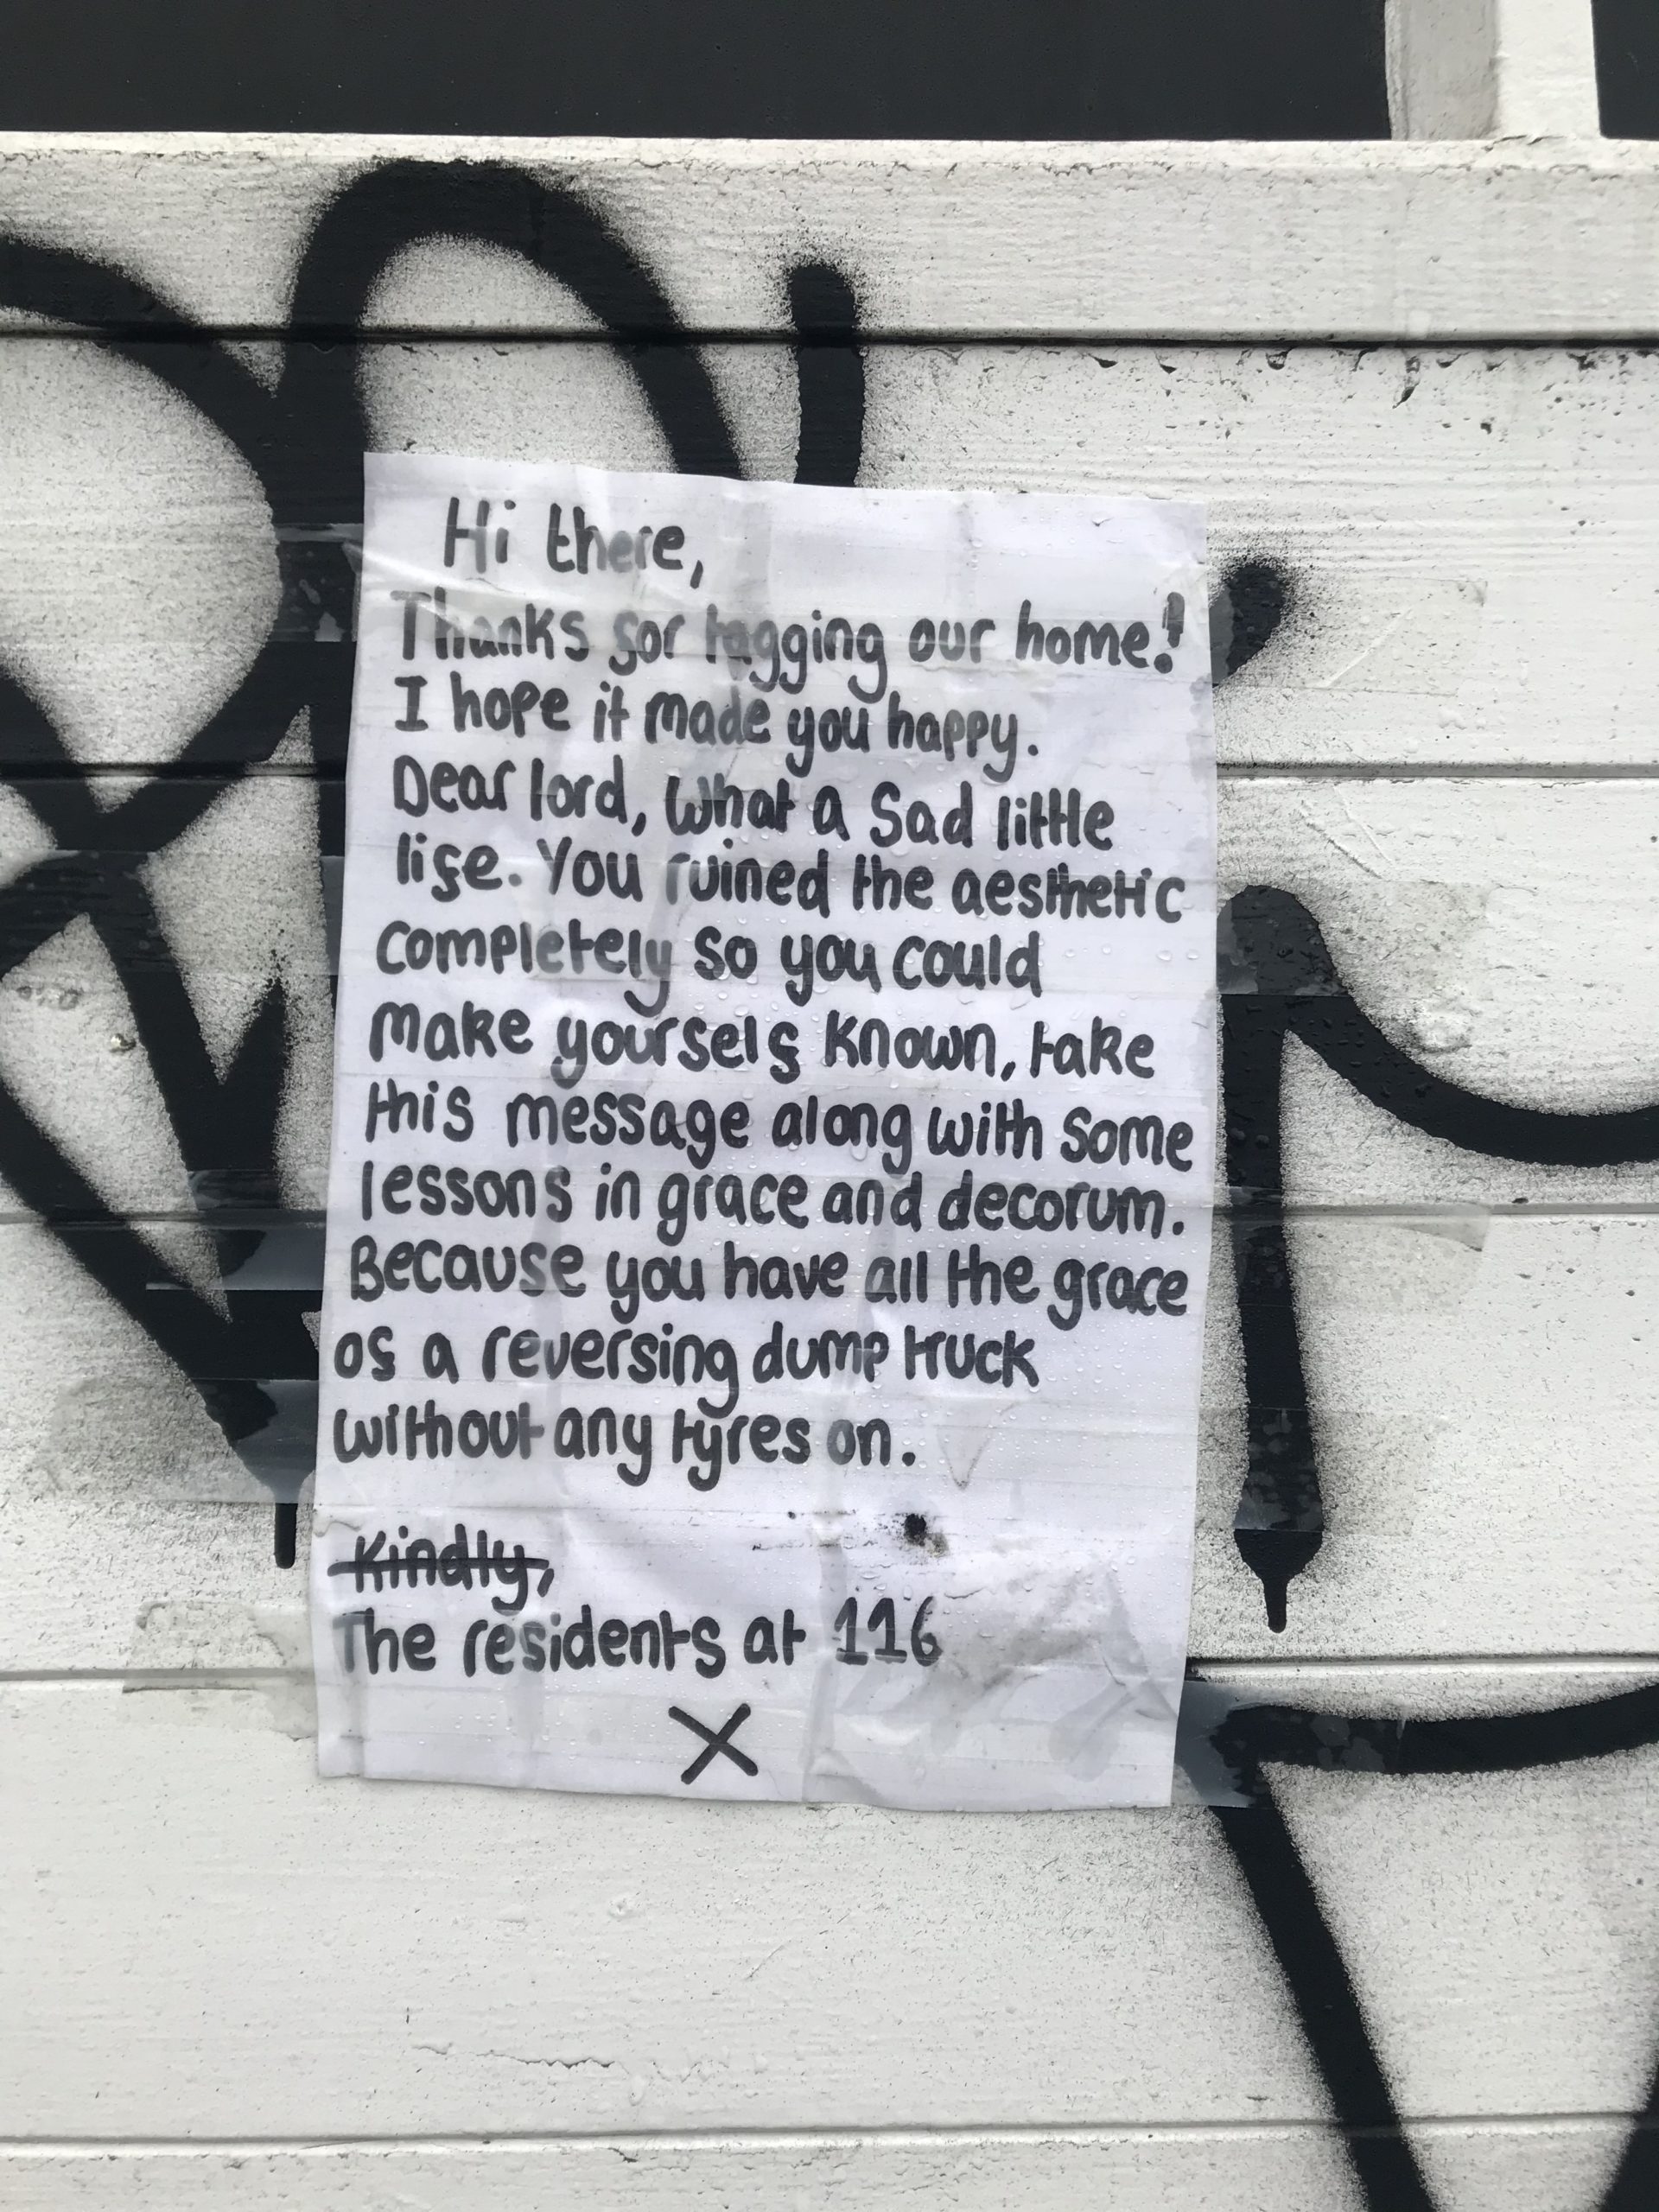 Hi there,
Thanks for tagging our home!
I hope it made you happy.
Dear lord, what a sad little
life. You ruined the aesthetic
completely so you could
make yourself known, take
this message along with some
lessons in grace and decorum.
Because you have all the grace
of a reversing dump truck
without any tyres on.
Kindly,
The residents at 116
X